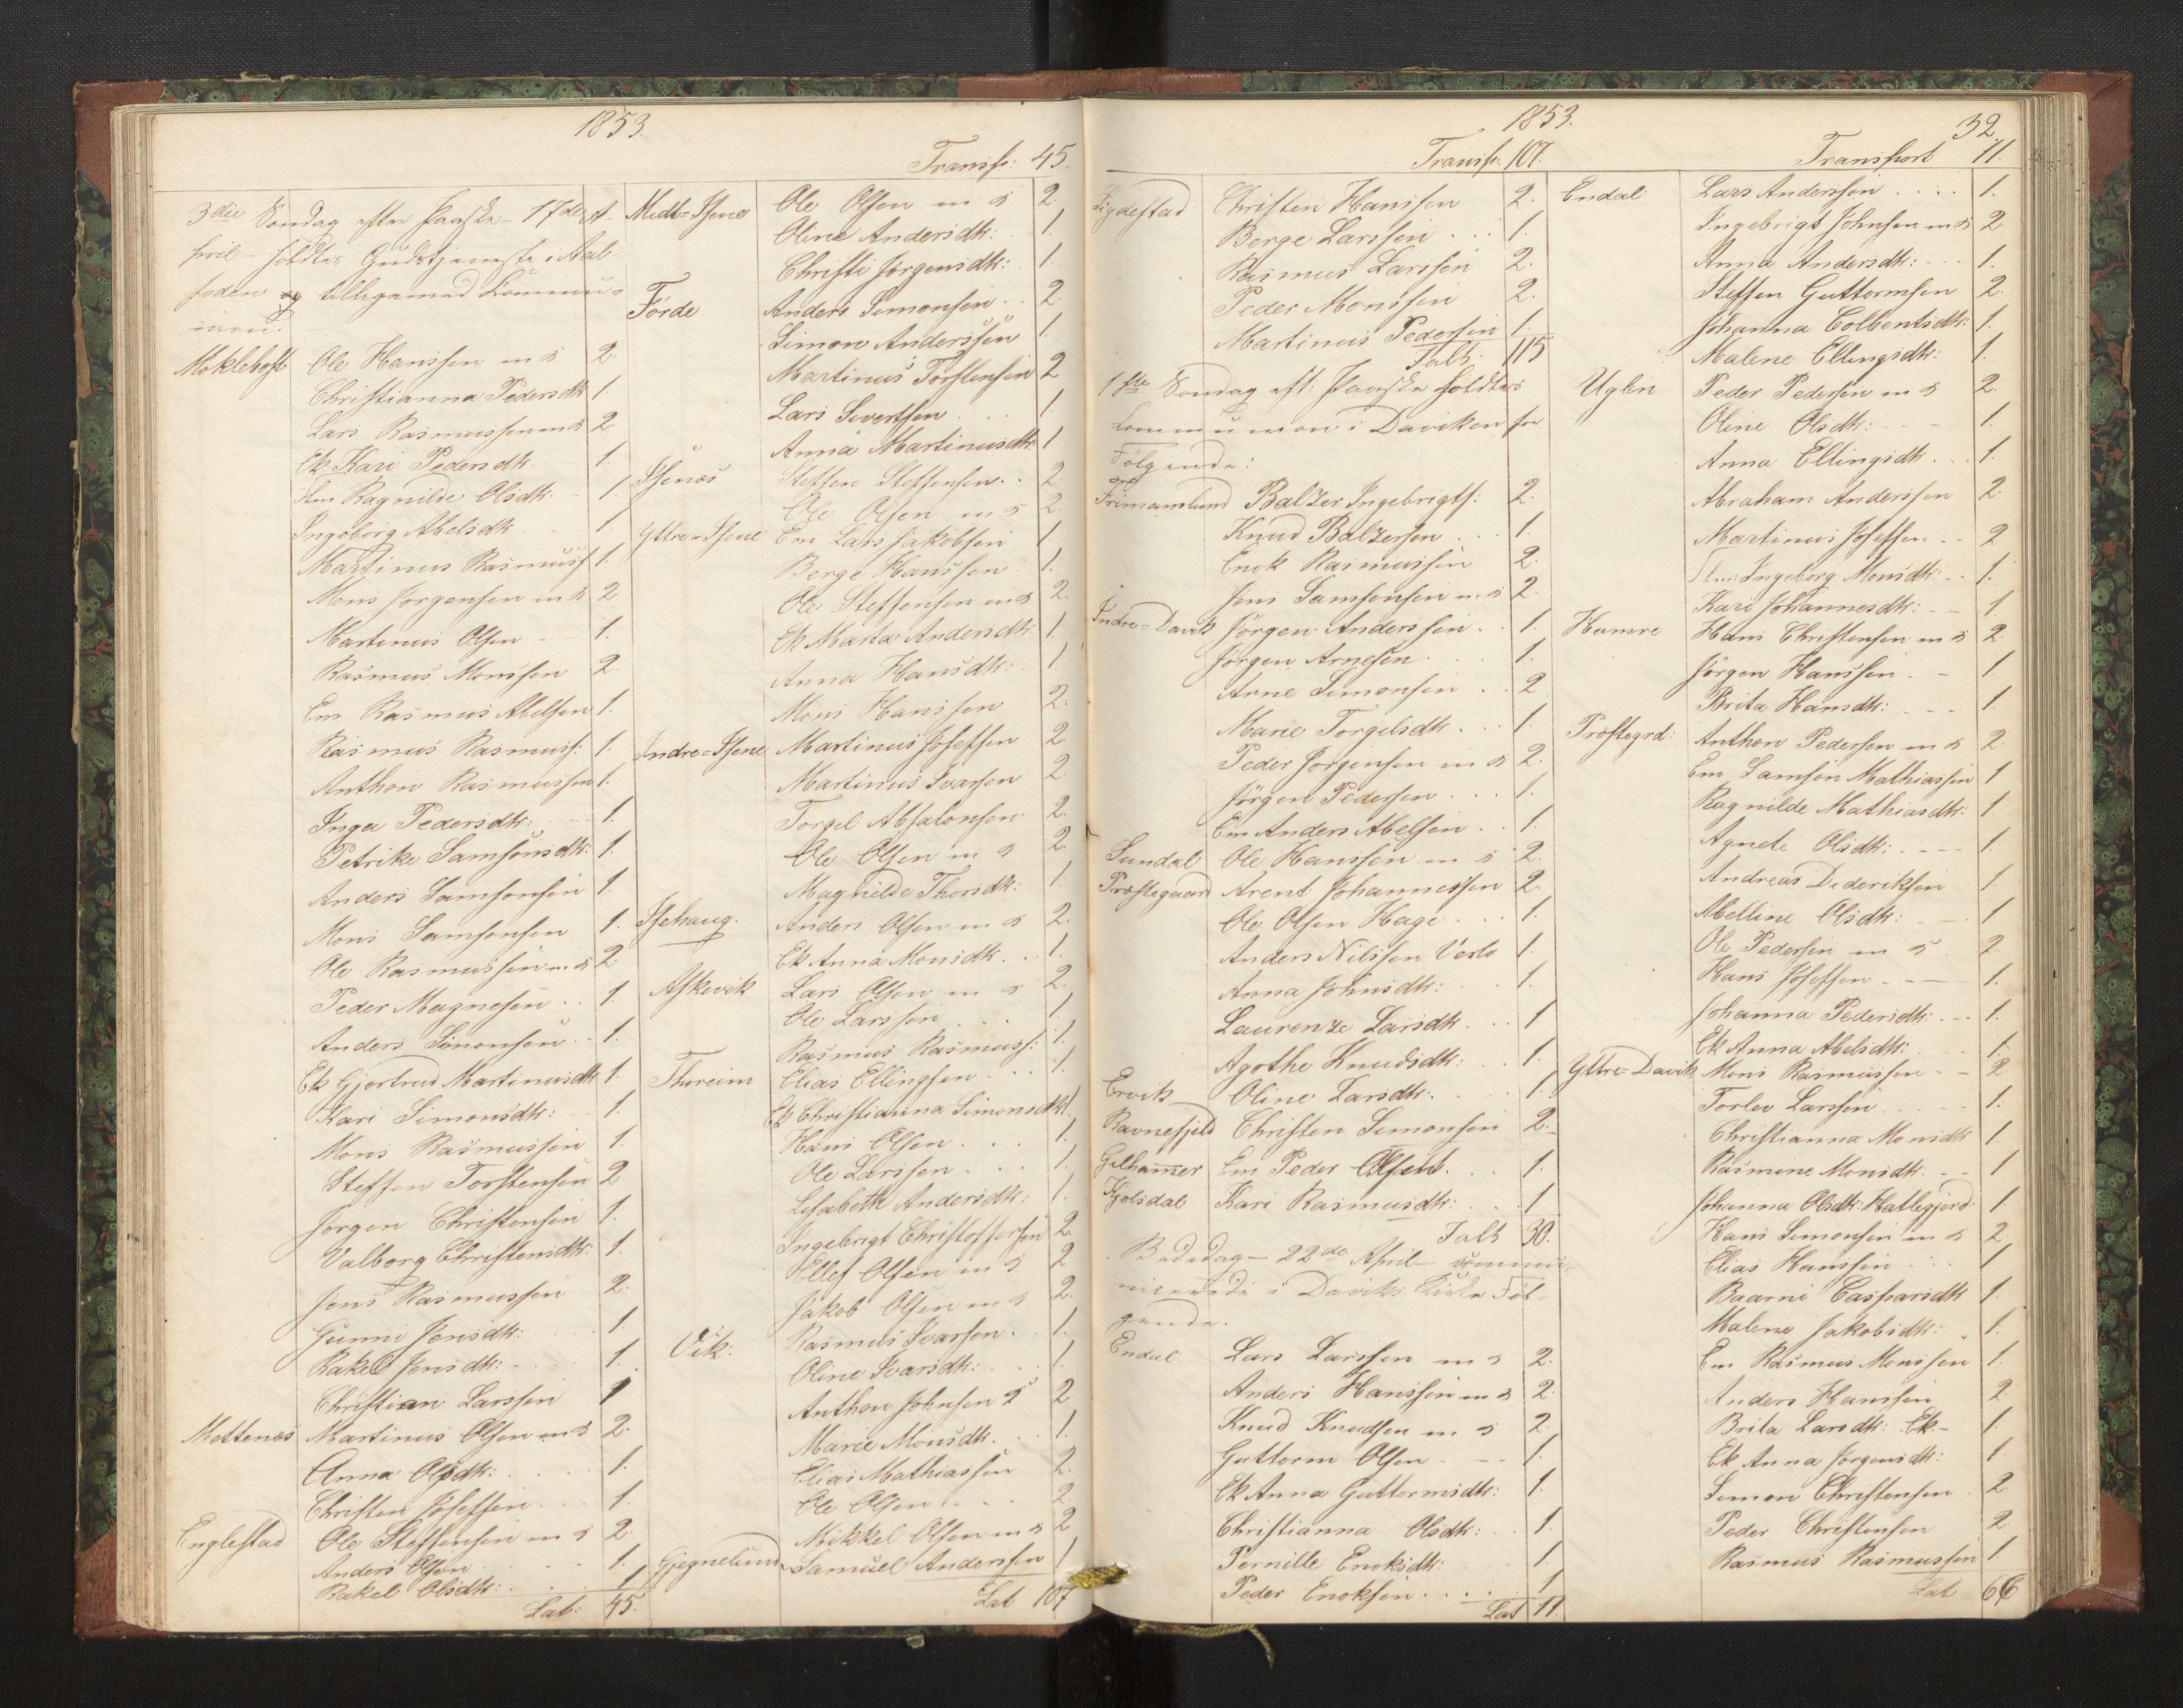 1853.
Transp: 45.
3die Søndag efter Paaske - 17de A-
pril - holdtes Gudstjeneste i Aal-
foden og tilligemed Commu-
nion.
Möklebost Ole Hanssen m h 2
Christianna Pedersdtr 1.
Lars Rasmussen m h 2
Ek Kari Pedersdtr. 1.
Ragnilde Olsdtr. 1.
Ingeborg Abelsdtr 1
Martinus Rasmuss 1.
Mons Jörgensen m h 2
Martinus Olsen 1.
Rasmus Monssen 2.
Em Rasmus Abelsen 1.
Rasmus Rasmuss: 1.
Anthon Rasmussen 1.
Inga Pedersdtr: 1.
Petrike Samsonsdtr: 1.
Anders Samsonsen 1.
Mons Samsonsen 1.
Ole Rasmussen m h 2
Peder Magnesen . . 1.
Anders Simonsen . . 1.
Ek Gjertrud Martinusdtr 1.
Kari Simonsdtr: 1.
Mons Rasmussen 1.
Steffen Torstensen 2
Jörgen Christensen 1.
Valborg Christensdtr: 1.
Jens Rasmussen 2.
Gunni Jensdtr: 1.
Rakel Jensdtr: 1.
Christian Larssen 1
Mettenæs Martinus Olsen m h 2.
Anna Olsdtr: 1.
Christen Josefsen 1.
Englestad Ole Steffensen m h 2.
Anders Olsen 1.
Rakel Olsdtr: 1
Lat: 45.
Midt=Isene Ole Olsen m h 2
Oline Andersdtr: 1.
Christi Jörgensdtr: 1.
Förde Anders Simonsen . . 2
Simon Anderssen 1.
Martinus Torstensen 2
Lars Sivertsen . . . 1
Anna Martinusdtr. 1
Isenæs Steffen Steffensen . . 2
Ole Olsen m h 2
Yttre=Isene Em Lars Jakobsen 1
Berge Hanssen 1.
Ole Steffensen m h 2.
Ek Marta Andersdtr 1.
Anna Hansdtr: 1.
Mons Hanssen 2.
Indre=Isene Martinus Josefsen 2
Martinus Ivarsen 2.
Torgel Absalonsen 2.
Ole Olsen m h 2
Magnilde Thorsdtr: 1.
Isehaug. Anders Olsen m h 2.
Ek Anna Monsdtr. . . 1.
Askevik Lars Olsen m h 2.
Ole Larssen . . . 1.
Rasmus Rasmuss: 1.
Thoreim Elias Ellingsen . . . 1.
Ek Christianna Simonsdtr 1.
Hans Olsen . . . 1.
Ole Larssen . . . 1.
Lisabeth Andersdtr: 1.
Ingebrigt Christoffersen 2.
Ellef Olsen m h 2
Jakob Olsen m h 2.
Vik: Rasmus Ivarsen . 1.
Oline Ivarsdtr: . . 1.
Anthon Johnsen 2
Marie Monsdtr. . . 1.
Elias Mathiassen 2.
Ole Olsen . . . 2.
Mikkel Olsen m h 2
Gjegnelund Samuel Anderssen 1
Lat 107
1853. 32.
Transp. 107.
Transport 11.
Rigdestad Christen Hanssen 2.
Berge Larssen . . . 1.
Rasmus Larssen 2.
Peder Monssen 2.
Martinus Pedersen 1.
Talt: 115
1ste Søndag eft: Paaske holdtes
Communion i Daviken for
Følgende:
Frimanslund Balzer Ingebrigts: 2.
Knud Balzersen . . . 1.
Enok Rasmussen 2.
Jens Samsonsen m h 2.
Indre=Davik Jörgen Anderssen . . 1.
Jörgen Arnesen . . . 1.
Arne Simonsen . . 2
Marie Torgelsdtr . . . 1.
Peder Jorgensen m h 2.
Jörgen Pedersen . . . 1.
Em Anders Abelsen . . 1.
Sundal Ole Hanssen m h 2.
Præstegaard Arent Johannessen 2.
Ole Olsen Hage . . . 1.
Anders Nilssen 1.
Anna Johnsdtr: . . 1.
Laurenze Larsdtr. . . 1
Agothe Knudsdtr: . . 1.
Ervik Oline Larsdtr: . . 1
Ravnefjeld Christen Simonsen 2.
Gelhammer Em Peder Olsen . . . 1.
Kjolsdal Kari Rasmusdtr: . . 1
Talt 30.
Bededag - 22de April commu-
nicerede i Daviks Kirke Föl-
gende.
Endal Lars Larssen m h 2.
Anders Hanssen m h 2.
Knud Knudsen m h 2
Guttorm Olsen - - - 1.
Ek Anna Guttormsdtr: 1.
Christianna Olsdtr: . . 1.
Pernille Enoksdtr: 1
Peder Enoksen . . . . 1
Lat 11.
Endal Lars Anderssen . . . . 1.
Ingebrigt Johnsen m h 2
Anna Andersdtr: - - - 1.
Steffen Guttormsen 2.
Johanna Colbentsdtr: 1.
Malene Ellingsdtr: 1.
Uglen Peder Pedersen m h 2.
Oline Olsdtr: - - - 1.
Anna Ellingsdtr . . . 1.
Abraham Anderssen 2.
Martinus Josefsen . . 2
Ingeborg Monsdtr. - . 1.
Kari Johannesdtr: - - 1
Humre Hans Christensen m h 2.
Jörgen Hanssen . - 1
Brita Hansdtr: - - - 1
Præstegrd: Anthon Pedersen m h 2.
Em Samson Mathiassen 1
Ragnilde Mathiasdtr: 1
Agnete Olsdtr: - - - 1.
Andreas Dideriksen 1
Abelline Olsdtr: - - . 1
Ole Pedersen m h 2
Hans Josefsen - - - 1.
Johanna Pedersdtr - - - 1.
Ek Anna Abelsdtr: . . 1.
Yttre=Davik Mons Rasmussen . - 2
Torlev Larssen . . . 1.
Christianna Monsdtr 1
Rasmine Monsdtr. - - 1
Johanna Olsdtr: Hatlegjerd 1
Hans Simonsen m h 2
Elias Hanssen . . . 1
Baarni Casparsdtr 1
Malene Jakobsdtr: . 1.
Em Rasmus Monssen 1.
Anders Hanssen 2
Brita Larsdtr: Ek - 1.
Ek Anna Jorgensdtr: 1
Simon Christensen . 2
Peder Christensen 2
Rasmus Rasmussen 1
Lat 66